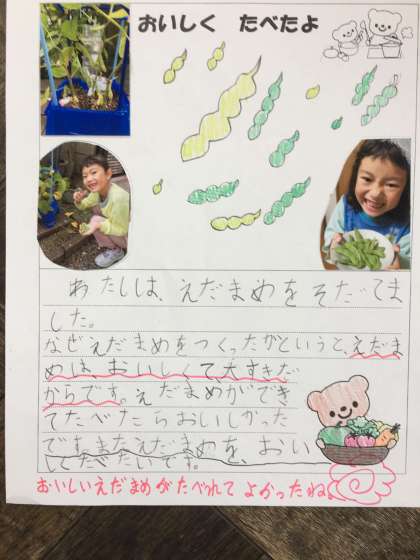 おいしく たべたよ
わたしは、えだまめをそだてま
した。
なぜえだまめをつくったかというと、えだま
めは、おいしくて、大すきだ
からです。えだまめができ
てたべたらおいしかった
です。またえだまめを、おい
してたべたいです。
おいしいえだまめがたべれて よかったね。